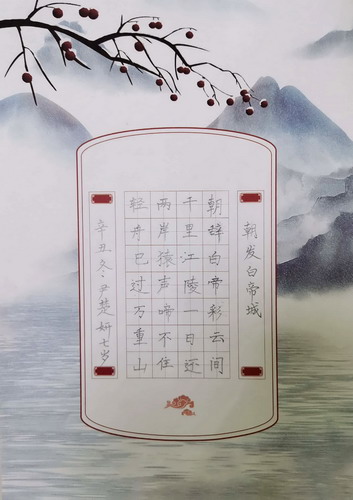 朝发白帝城
朝辞白帝彩云间
千里江陵一日还
两岸猿声啼不住
轻舟已过万重山
辛丑冬·尹楚妍七岁